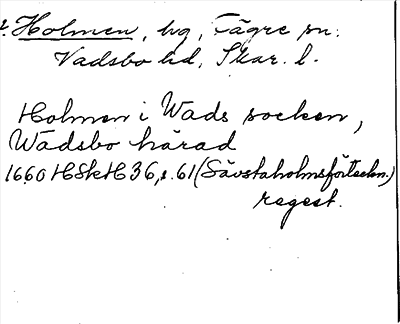 Holmen, hg, Fägre sn.
Vadsbo hd, Skar. l.
Holmen i Wads socken,
Wadsbo härad
1660 HSkH 36, s. 61 (Sävstaholmsförteckn.)
regest.